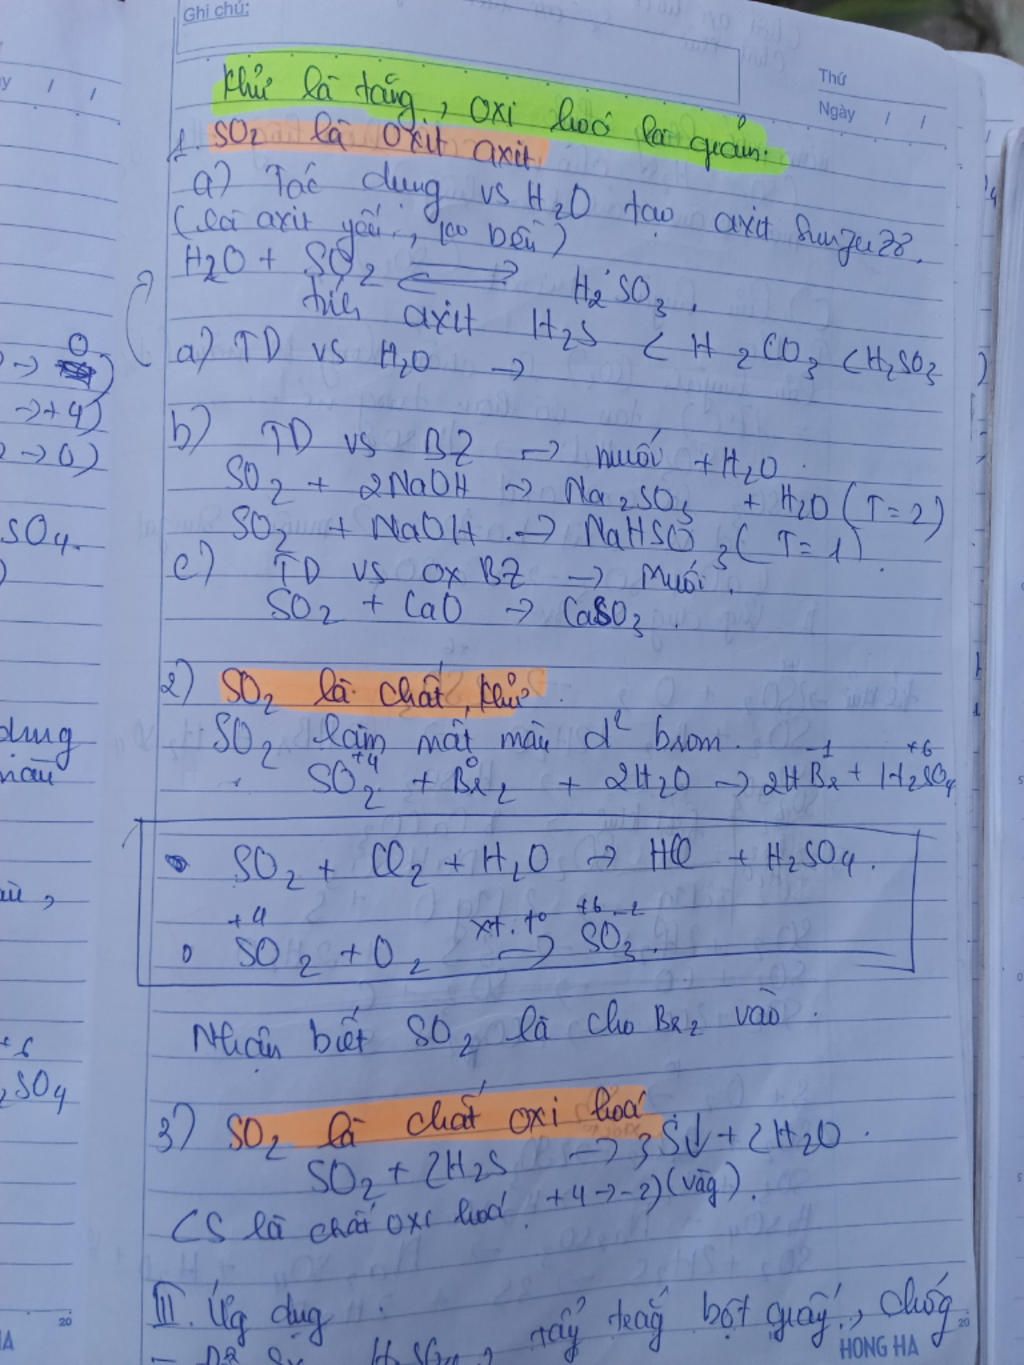 Ghi chú:
Thứ
Ngày / /
Khử là tăng, oxi hoá là giảm.
1. SO2 là oxit axit
a) Tác dụng vs H2O tạo axit Sunfurơ.
(là axit yếu, ko bền)
H2O + SO2 ⇌ H2SO3.
tính axit H2S < H2CO3 < H2SO3
a) TD vs H2O →
b) TD vs BZ → muối + H2O.
SO2 + 2NaOH → Na2SO3 + H2O (T=2)
SO2 + NaOH → NaHSO3 (T=1).
c) TD vs ox BZ → Muối.
SO2 + CaO → CaSO3.
2) SO2 là chất khử.
SO2 làm mất màu d² brom.
+4 0 -1 +6
SO2 + Br2 + 2H2O → 2HBr + H2SO4
SO2 + Cl2 + H2O → HCl + H2SO4.
+4 xt, t° +6 -2
SO2 + O2 → SO3.
Nhận biết SO2 là cho Br2 vào.
3) SO2 là chất oxi hoá
SO2 + 2H2S → 3S↓ + 2H2O.
(S là chất oxi hoá. +4 → -2) (vàg).
III. Ứg dụg
tẩy trắg bột giấy, chốg
HONG HA
20
→ 0)
→ +4)
→ 0)
SO4.
dung
màu
+6
SO4
20
HA